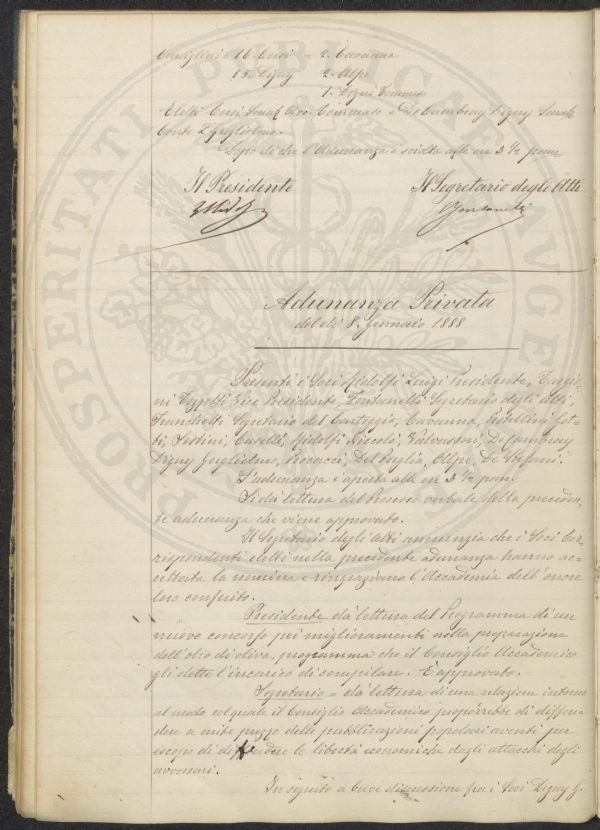 Consiglieri = 16. Corsi = 2. Cavanna
15. Digny 2. Alpe
1. Digny Tommaso
Eletti Corsi Tommaso e De Cambray Digny
Conte Guglielmo.
Dopo di che l'Adunanza è sciolta alle ore 3 1/2 pom.
Il Presidente Il Segretario degli Atti
Adunanza Privata
del dì 8. Gennaio 1888
Presenti i Soci Ridolfi Luigi Presidente, Targio=
ni Tozzetti Vice Presidente, Fontanelli Segretario degli Atti,
Franchetti Segretario del Carteggio, Cavanna, Pestellini, Got=
ti, Sestini, Caselli, Ridolfi Niccolò, De Cambray
Digny Guglielmo, Procacci, Del Puglia, Alpe, De Stefani.
L'adunanza è aperta alle ore 2 1/2 pom.
Si dà lettura del Processo verbale della preceden=
te adunanza che viene approvato.
Il Segretario degli Atti annunzia che i Soci Cor=
rispondenti eletti nella precedente adunanza hanno ac=
cettata la nomina e ringraziano l'Accademia dell'onore
loro conferito.
Presidente dà lettura del Programma di un
nuovo concorso pei miglioramenti nella preparazione
dell'olio di oliva, programma che il Consiglio Accademico
gli dette l'incarico di compilare. È approvato.
Segretario = dà lettura di una relazione intorno
al modo col quale il Consiglio Accademico proporrebbe di diffon=
dere a mite prezzo delle pubblicazioni popolari aventi per
iscopo di difendere le libertà economiche dagli attacchi degli
avversari.
In seguito a breve discussione fra i Soci Digny G.
PROSPERITATI PUBLICAE AUGENDAE